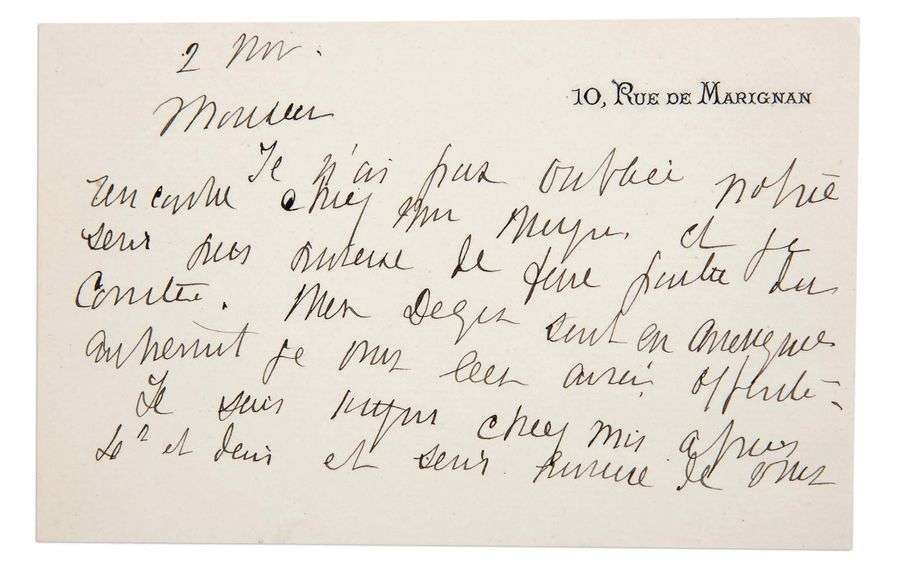 2 Nov.
10, RUE DE MARIGNAN
Monsieur
Je n'ai pas oublié notre
rencontre chez Mr et je
serai heureuse de faire partie du
Comité. Mes Degas sont en Amérique
autrement je vous les aurai offerts.
Je suis toujours chez moi après
4h et demi et serai heureuse de vous